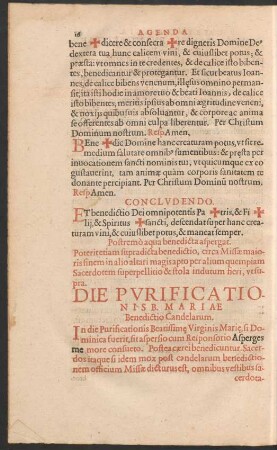 16 AGENDA
bene ✠ dicere & consecra ✠ re digneris Domine De
dextera tua hunc calicem vini, & cuiuslibet potus, &
præsta: vt omnes in te credentes, & de calice isto bibentes,
benedicantur & protegantur. Et sicut beatus Ioannes,
de calice bibens venenum, illęsus omnino permansit;
ita isti hodie in amore tuo & beati Ioannis, de calice
isto bibentes, meritis ipsius ab omni ægritudine veneni,
& noxijs quibusuis absoluantur, & corpore ac anima
se offerentes ab omni culpa liberentur. Per Christum
Dominum nostrum. Resp Amen.
BEne ✠ dic Domine hanc creaturam potus, vt sit remedium
salutare omnibus sumentibus: & præsta per
inuocationem sancti nominis tui, vt quicunque ex eo
gustauerint, tam animæ quàm corporis sanitatem te
donante percipiant. Per Christum Dominū nostrum.
Resp Amen.
CONCLVDENDO.
ET benedictio Dei omnipotentis Pa ✠ tris, & Fi ✠
lij, & Spiritus ✠ sancti, descendat super hanc creaturam
vini, & cuiuslibet potus, & maneat semper.
Postremò aqua benedicta aspergat.
Poterit etiam supradicta benedictio, circa Missæ maioris
finem in alio altari magis apto per alium quempiam
Sacerdotem superpelliceo & stola indutum fieri, vt supra.
DIE PVRIFICATIO-
NIS B. MARIAE
Benedictio Candelarum.
In die Purificationis Beatissimę Virginis Marię, si Dominica
fuerit, fit aspersio cum Responsorio Asperges
me more consueto. Postea
sacerdota-